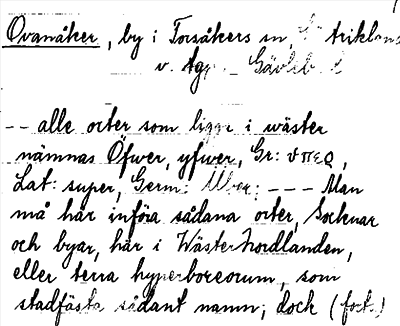 Ovanåker, by i Torsåkers sn, Gästrikland
v. tgp. Gävleb. l
-- alle orter som ligge i wäster
nämnas Öfwer, yfwer, Gr: υπερ,
Lat: super, Germ: Uber; --- Man
må här införa sådana orter, Socknar
och byar, här i WästerNordlanden,
eller terra hyperboreorum, som
stadfästa sådant namn; dock (forts.)